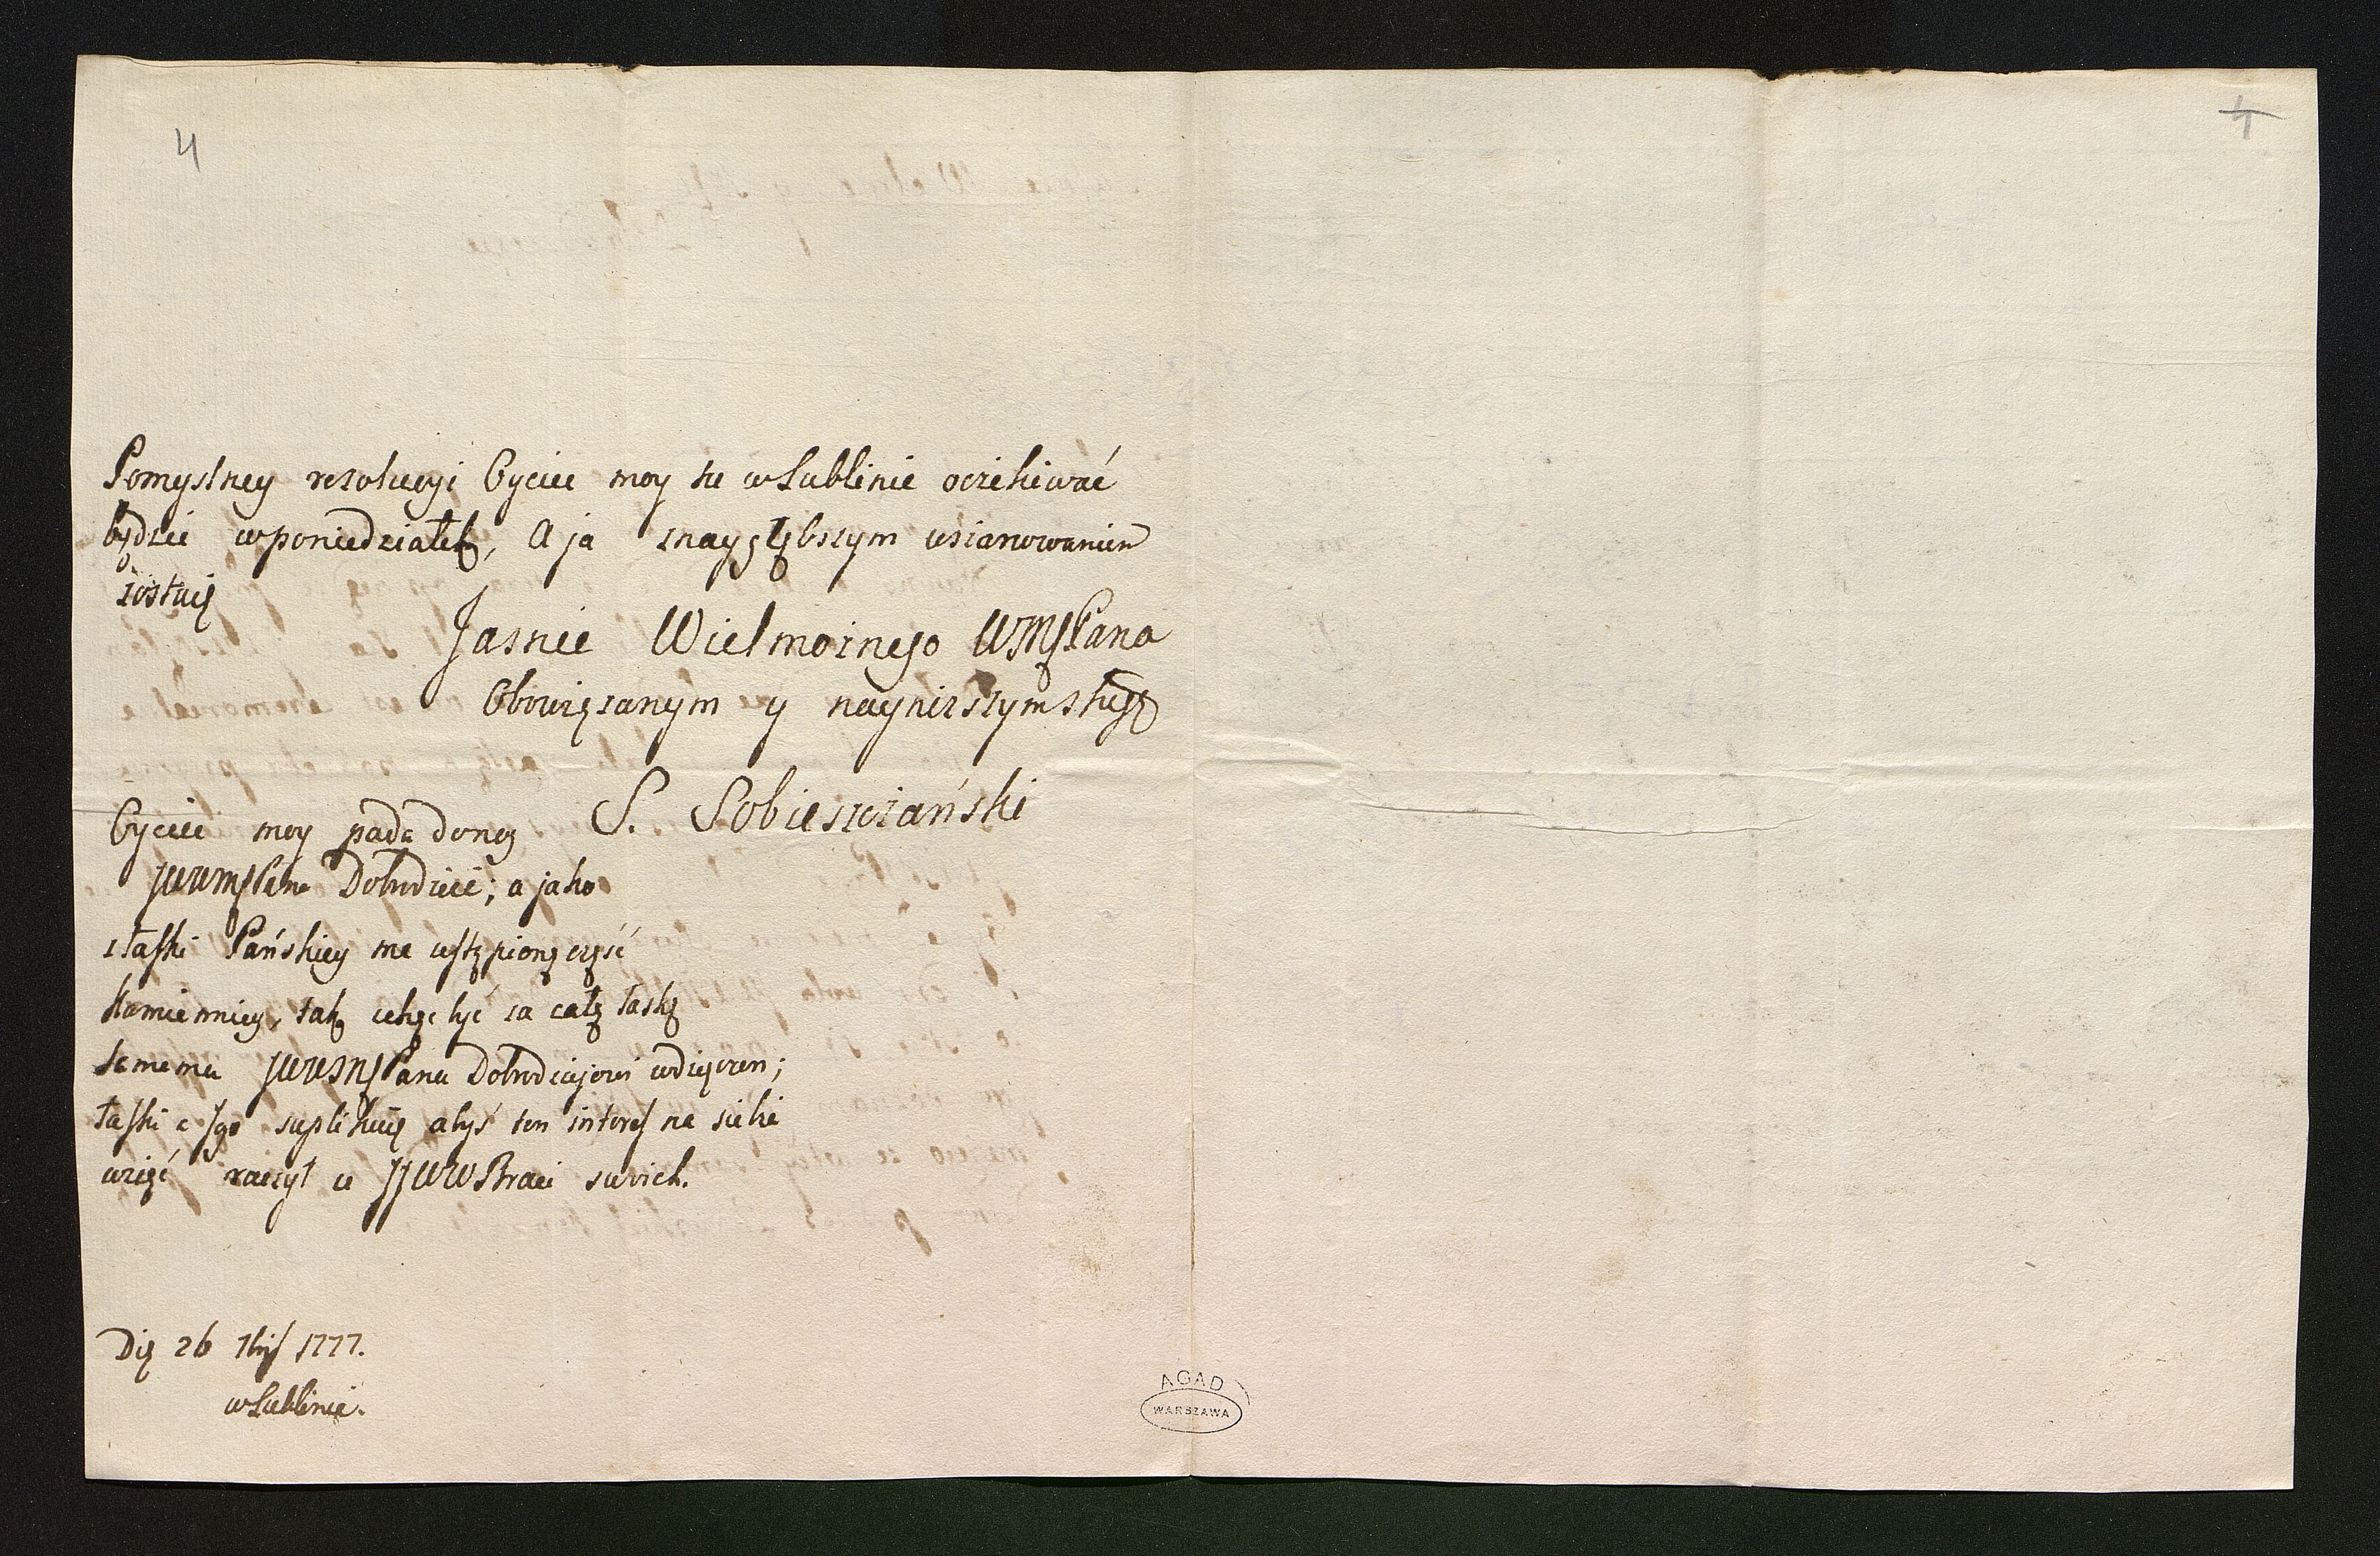 4
4
Pomyslney rezolucyi Oyciec moy tu w Lublinie oczekiwać
będzie w poniedziałek, A ja z naygłębszym uszanowaniem
zostaię
Jasnie Wielmożnego WMPana
Obowięzanym y naynizszym sługą
S. Sobieszczański
Oyciec moy pada do nog
JWWMPana Dobrodzieia; a jako
z łaski Pańskiey ma ustąpioną część
Kamienicy, tak chce być za całą łaskę
samemu JWWMPanu Dobrodziejowi wdzięczen;
łaski Jego suplikuię abyś ten interes na siebie
wziąć raczył u JJWW Braci swoich.
Dię 26 7bris 1777.
w Lublinie.
AGAD
WARSZAWA